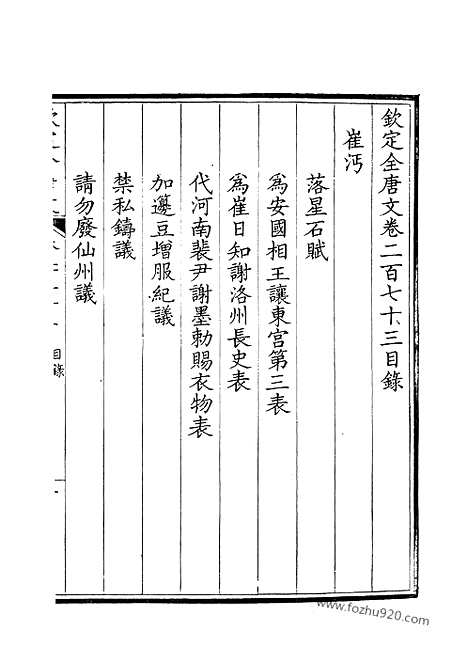 欽定全唐文卷二百七十三目錄
崔沔
落星石賦
爲安國相王讓東宮第三表
爲崔日知謝洛州長史表
代河南裴尹謝墨勅賜衣物表
加籩豆增服紀議
禁私鑄議
請勿廢仙州議
目錄
www.fozhu920.com